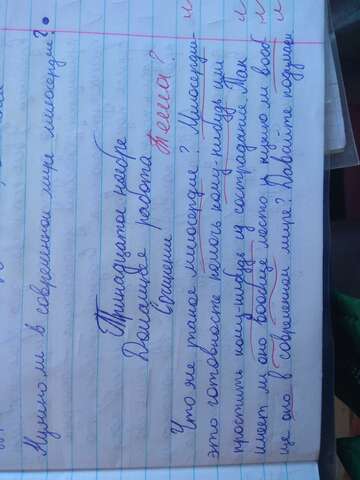 Нужно ли в современном мире милосердие?.
Тринадцатое ноября
Домашняя работа
Сочинение Тема?
Что же такое милосердие? Милосердие-
это готовность помочь кому-нибудь или
простить кому-нибудь из сострадания. Так
имеет ли оно вообще место и нужно ли вооб
ще оно в современном мире? Давайте подумаем